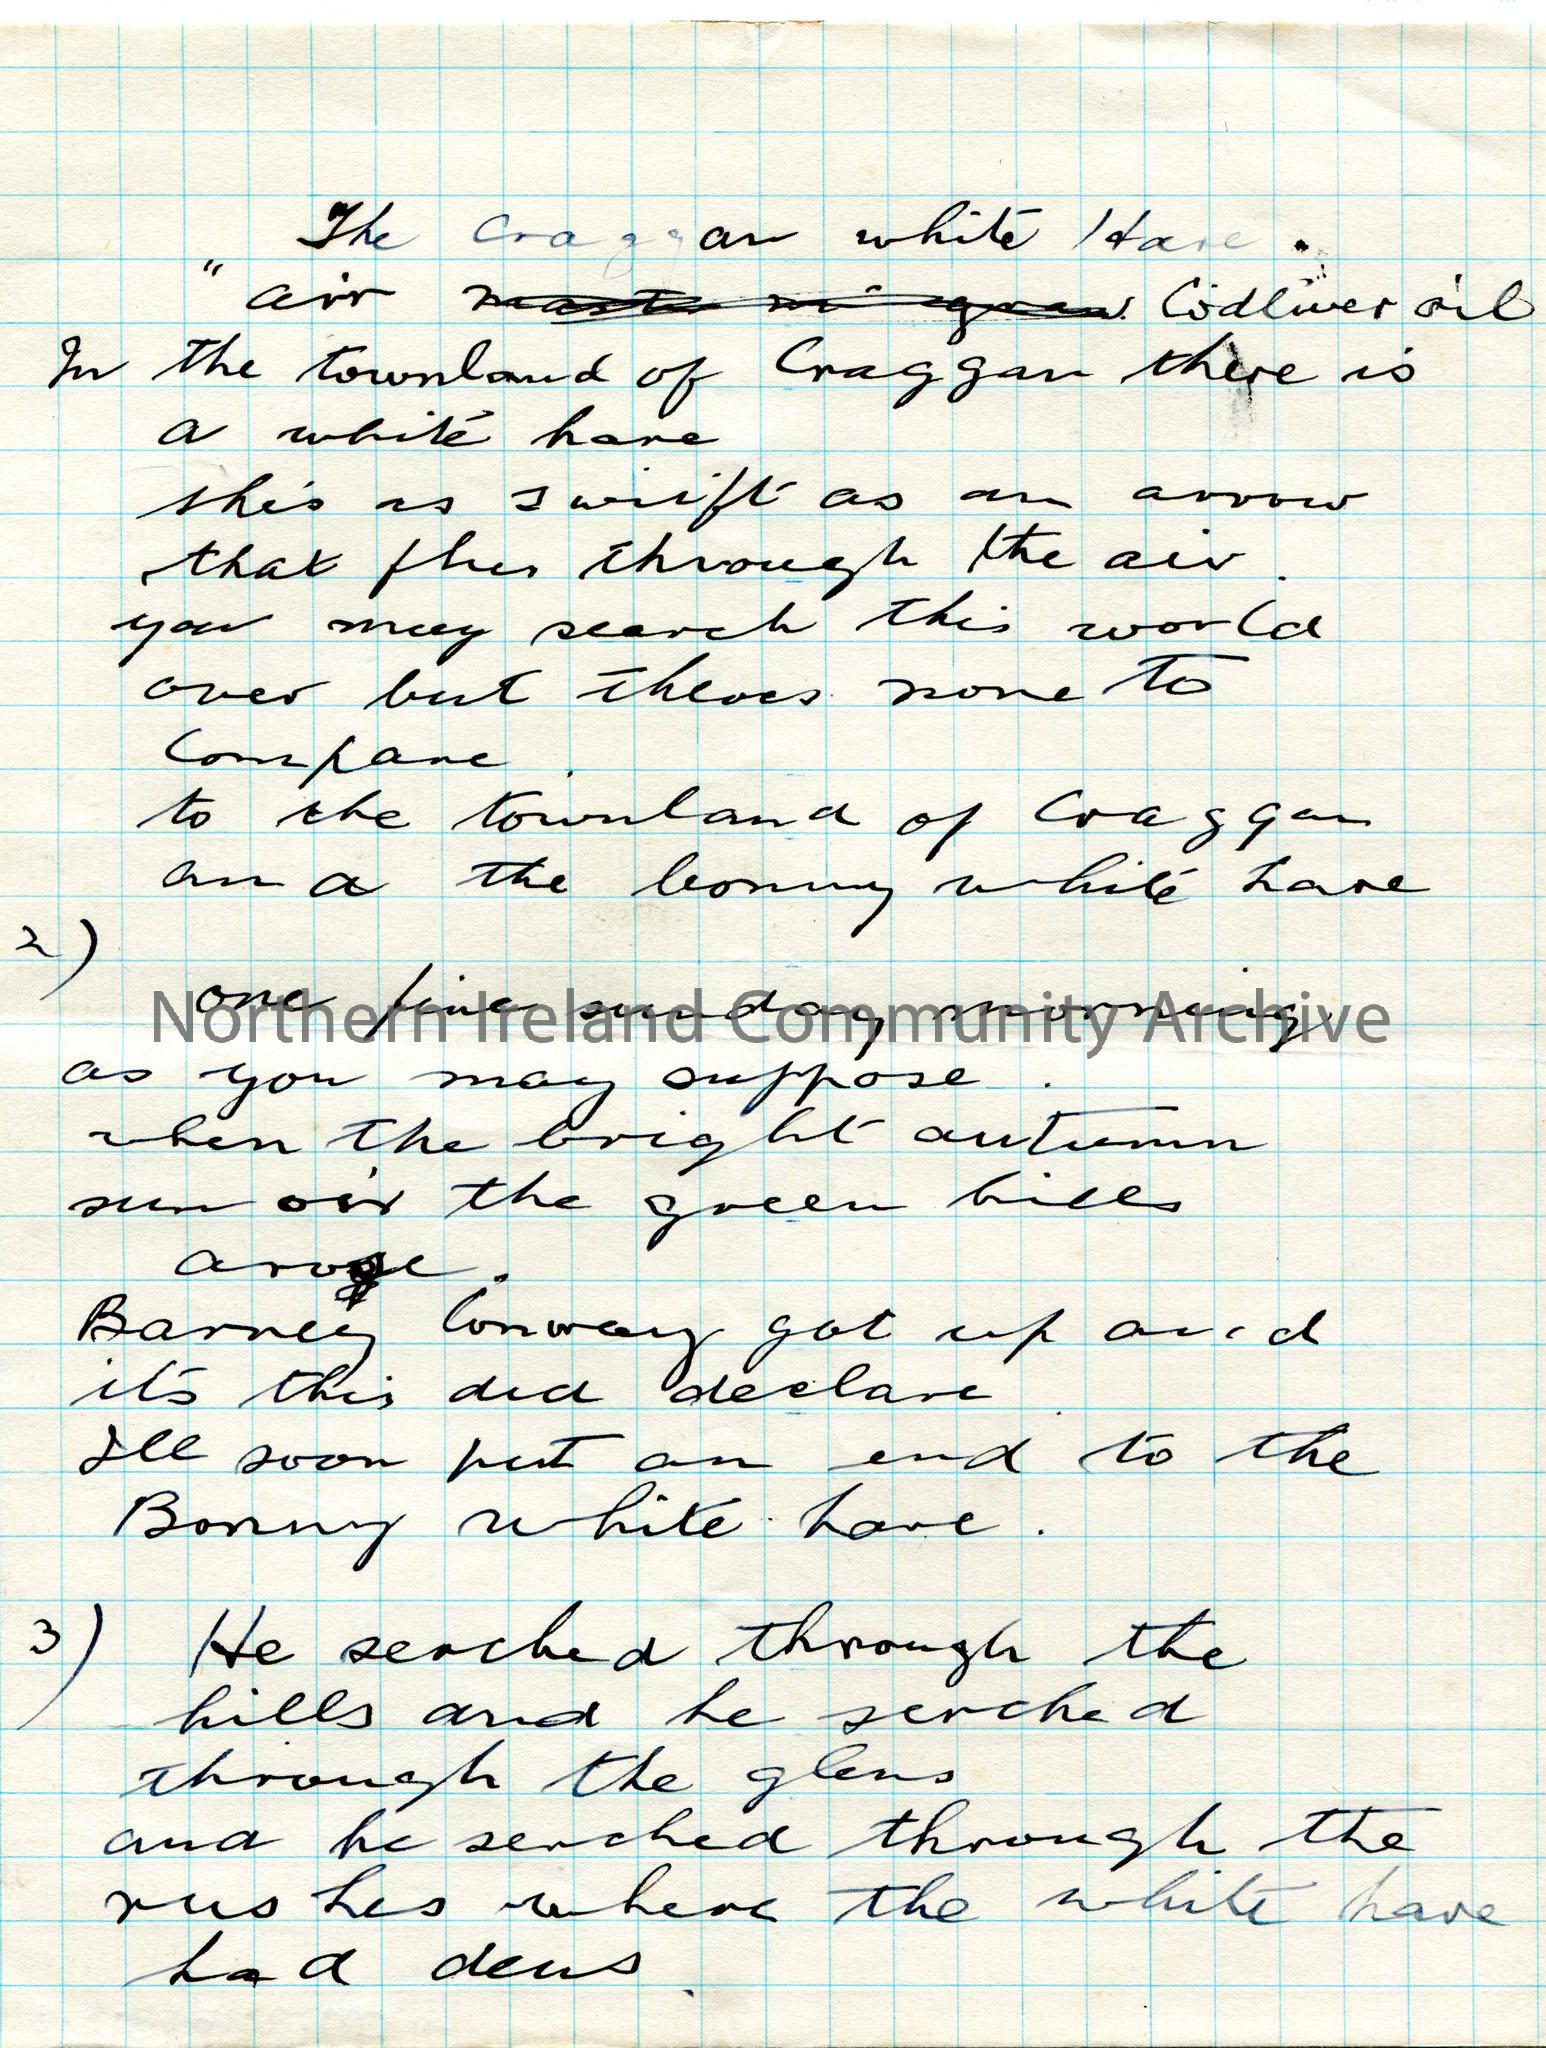 The Craggan white Hare.
" air Codliver oil
In the townland of Craggan there is
a white hare
she's as swift as an arrow
that flies through the air.
you may search this world
over but theres none to
Compare.
to the townland of Craggan
and the bonny white hare
2)
one fine sunday morning
as you may suppose.
when the bright autumn
sun oir the green hills
arose.
Barney Conway got up and
its this did declare
Ill soon put an end to the
Bonny white hare.
3) He serched through the
hills and he serched
through the glens
and he serched through the
rushes where the white hare
had dens.
Northern Ireland Community Archive